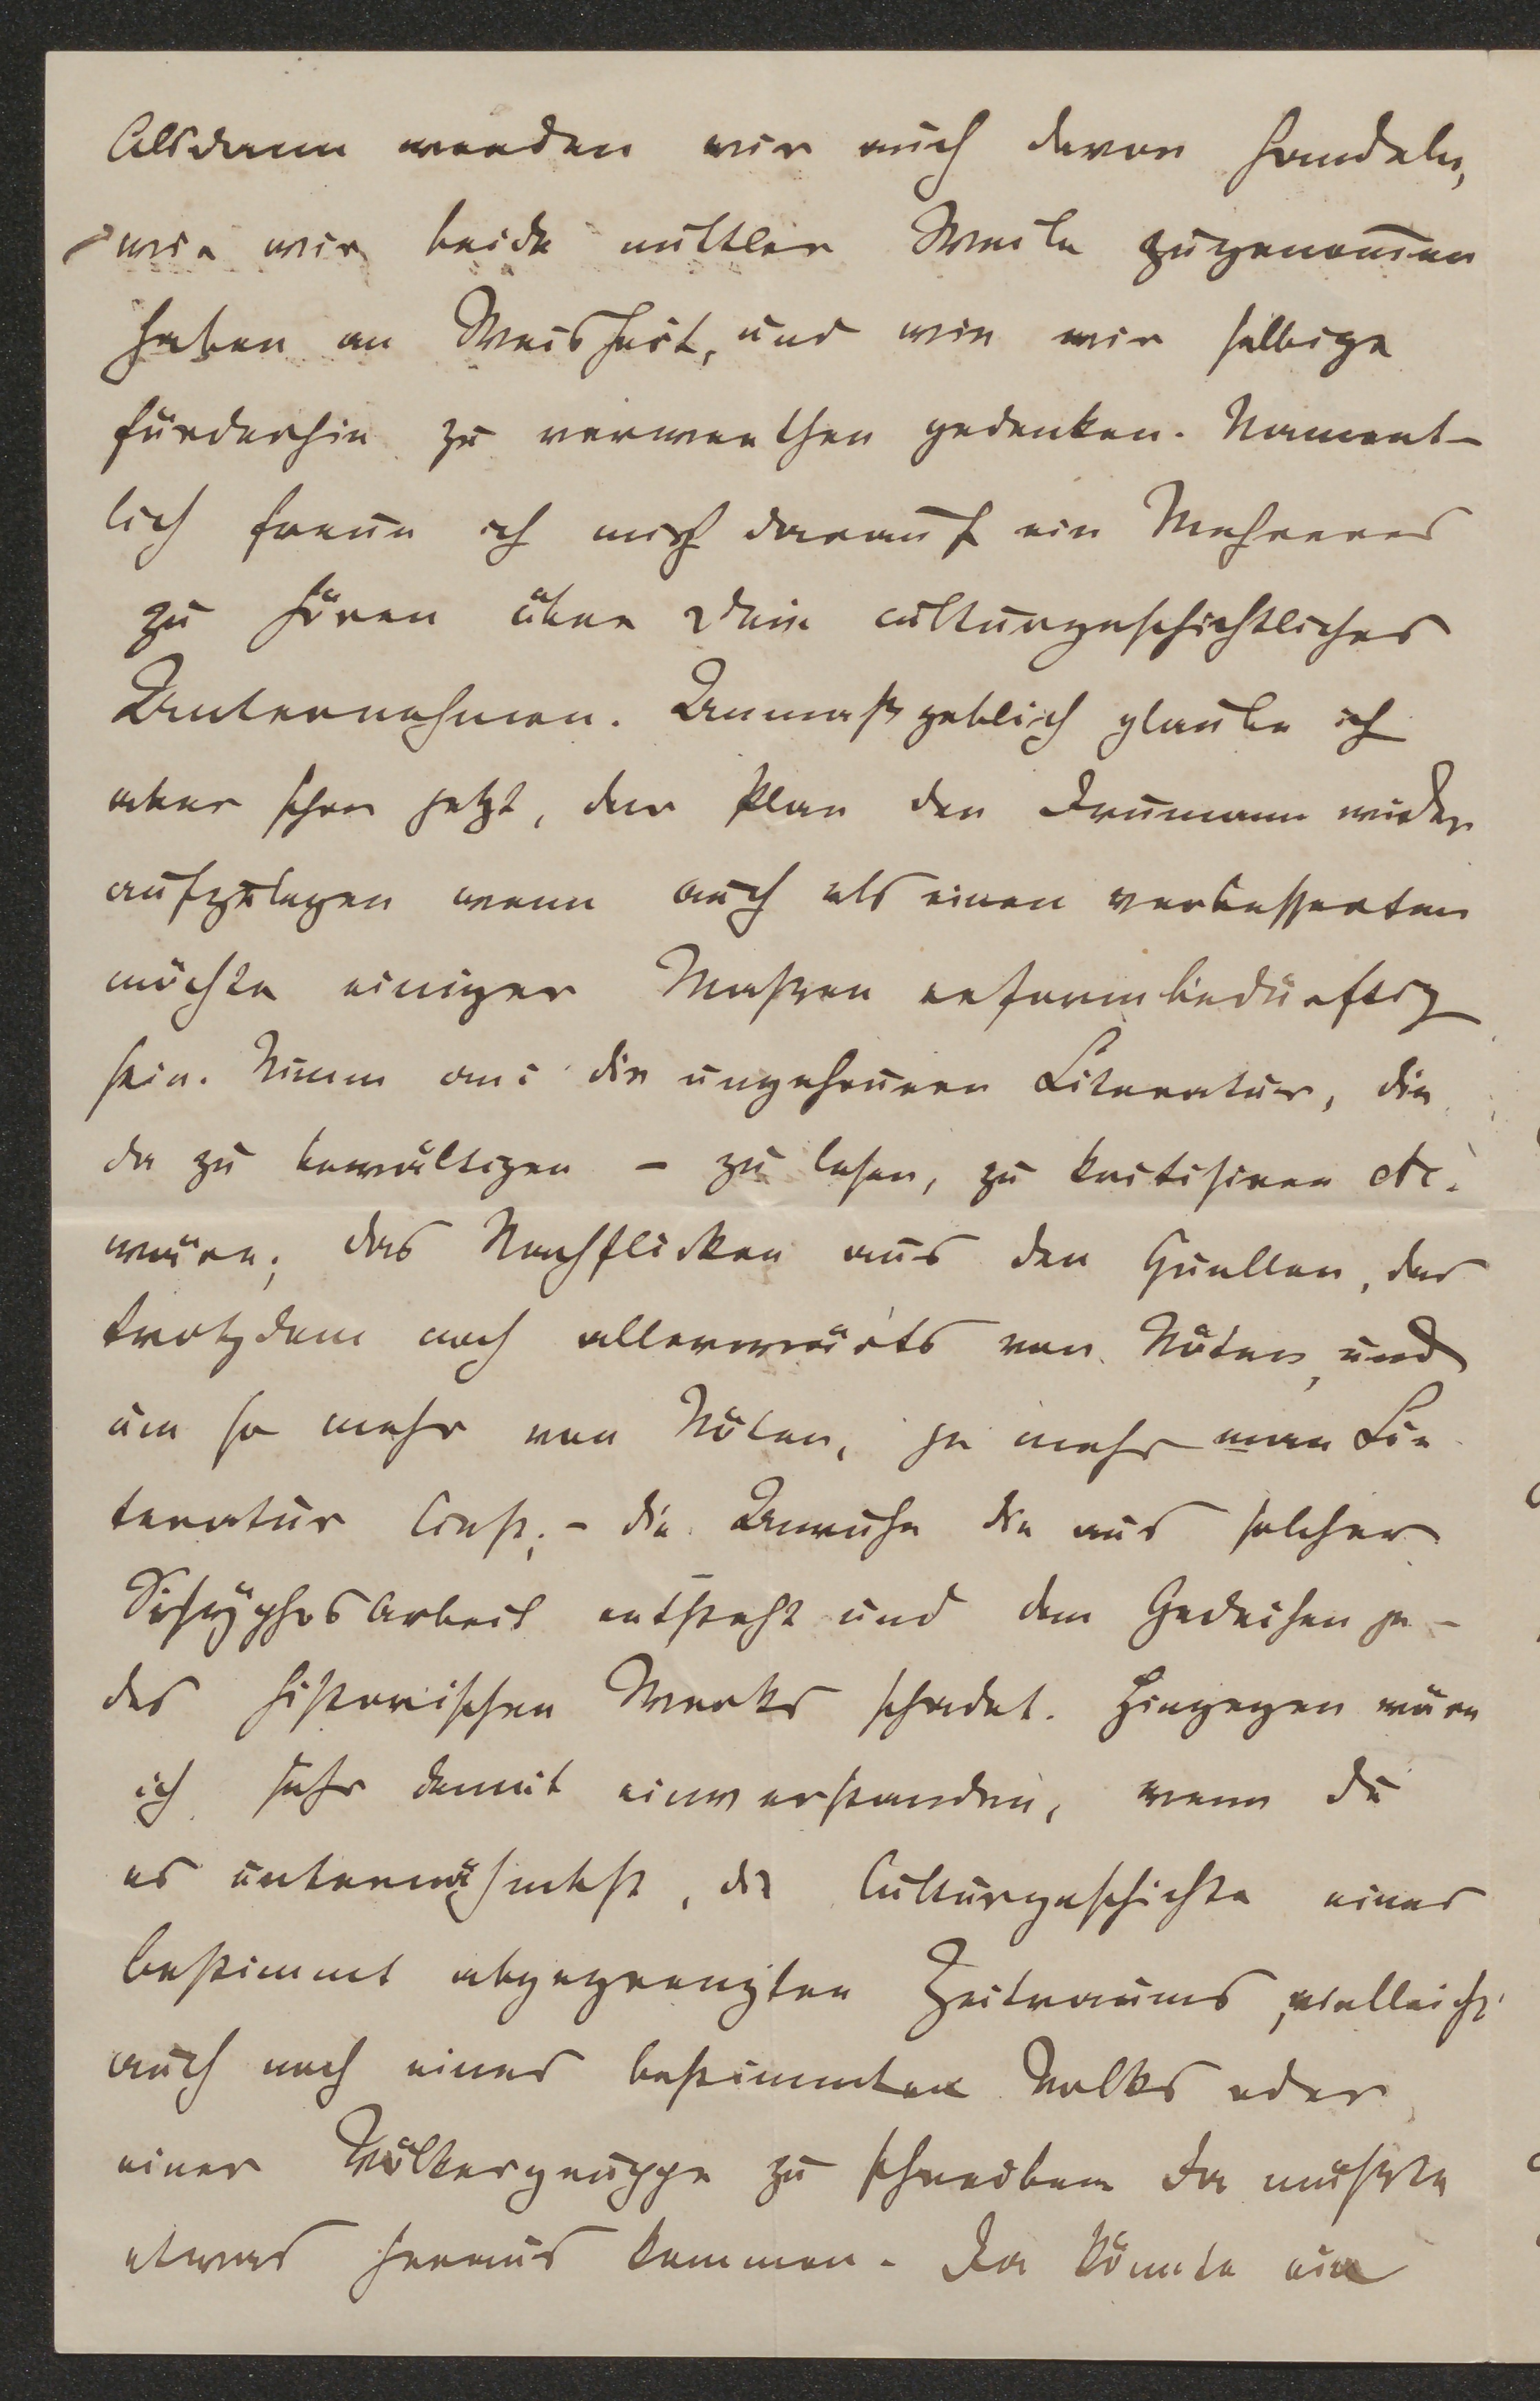 Alsdann werden wir auch davon handeln,
wie wir beide mittler Weile zugenommen
haben an Weisheit, und wie wir selbige
fürderhin zu verwerthen gedenken. Nament-
lich freue ich mich darauf ein Mehreres
zu hören über Dein culturgeschichtliches
Unternehmen. Unmaßgeblich glaube ich
aber schon jetzt, der Plan den Drumann wieder
aufzulegen wenn auch als einen verbesserten
möchte einiger Maßen reformbedürftig
sein. Nimm an die ungeheuere Literatur, die
da zu bewältigen – zu lesen, zu kritisiren etc.
wäre; das Nachflicken aus den Quellen, das
trotzdem noch allerwärts von Nöten, und
um so mehr von Nöten, je mehr man Li-
teratur liest; – die Unruhe die aus solcher
Sisyphosarbeit entsteht und dem Gedeihen je-
des historischen Werks schadet. Hingegen wäre
ich sehr damit einverstanden, wenn du
es unternähmest, die Culturgeschichte eines
bestimmt abgegrenzten Zeitraums, vielleicht
auch noch eines bestimmten Volks oder
einer Völkergruppe zu schreiben. Da müßte
etwas heraus kommen. Da könnte ein